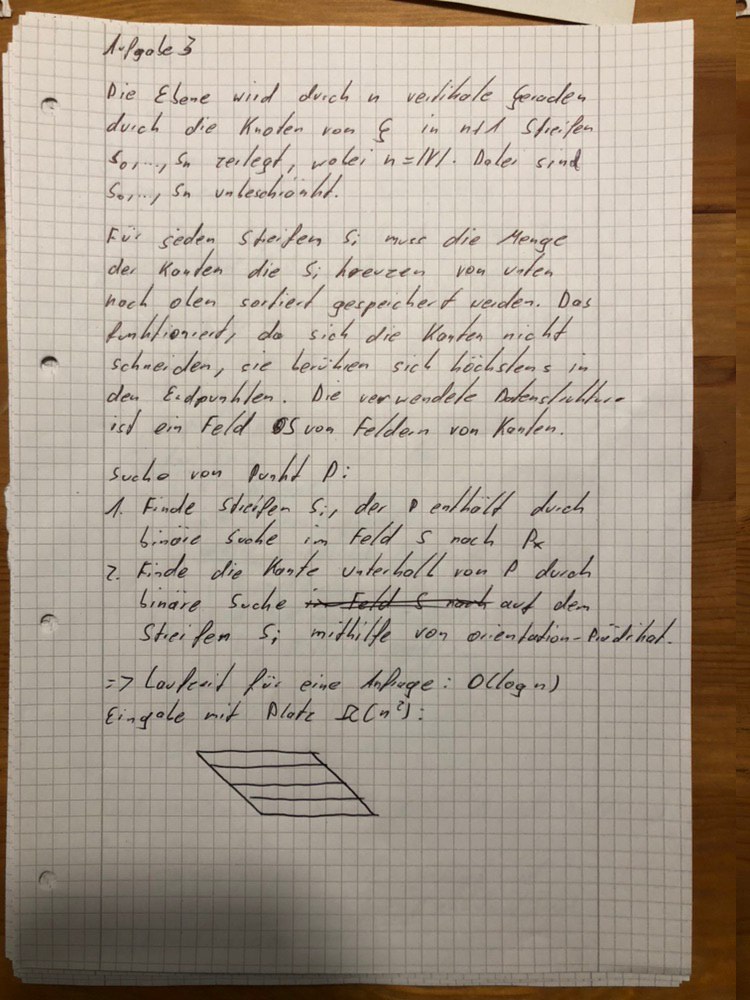 Aufgabe 3
Die Ebene wird durch n vertikale Geraden
durch die Knoten von G in n+1 Streifen
S₀,..., Sn zerlegt, wobei n=|V|. Dabei sind
S₀,..., Sn unbeschränkt.
Für jeden Streifen Si muss die Menge
der Kanten die Si kreuzen von unten
nach oben sortiert gespeichert werden. Das
funktioniert, da sich die Kanten nicht
schneiden, sie berühren sich höchstens in
den Endpunkten. Die verwendete Datenstruktur
ist ein Feld S von Feldern von Kanten.
Suche von Punkt P:
1. Finde Streifen Si, der P enthält durch
binäre Suche im Feld S nach Px
2. Finde die Kante unterhalb von P durch
binäre Suche im Feld S nach auf dem
Streifen Si mithilfe von orientation-Prädikat.
=> Laufzeit für eine Anfrage: O(log n)
Eingabe mit Platz Ω(n²):